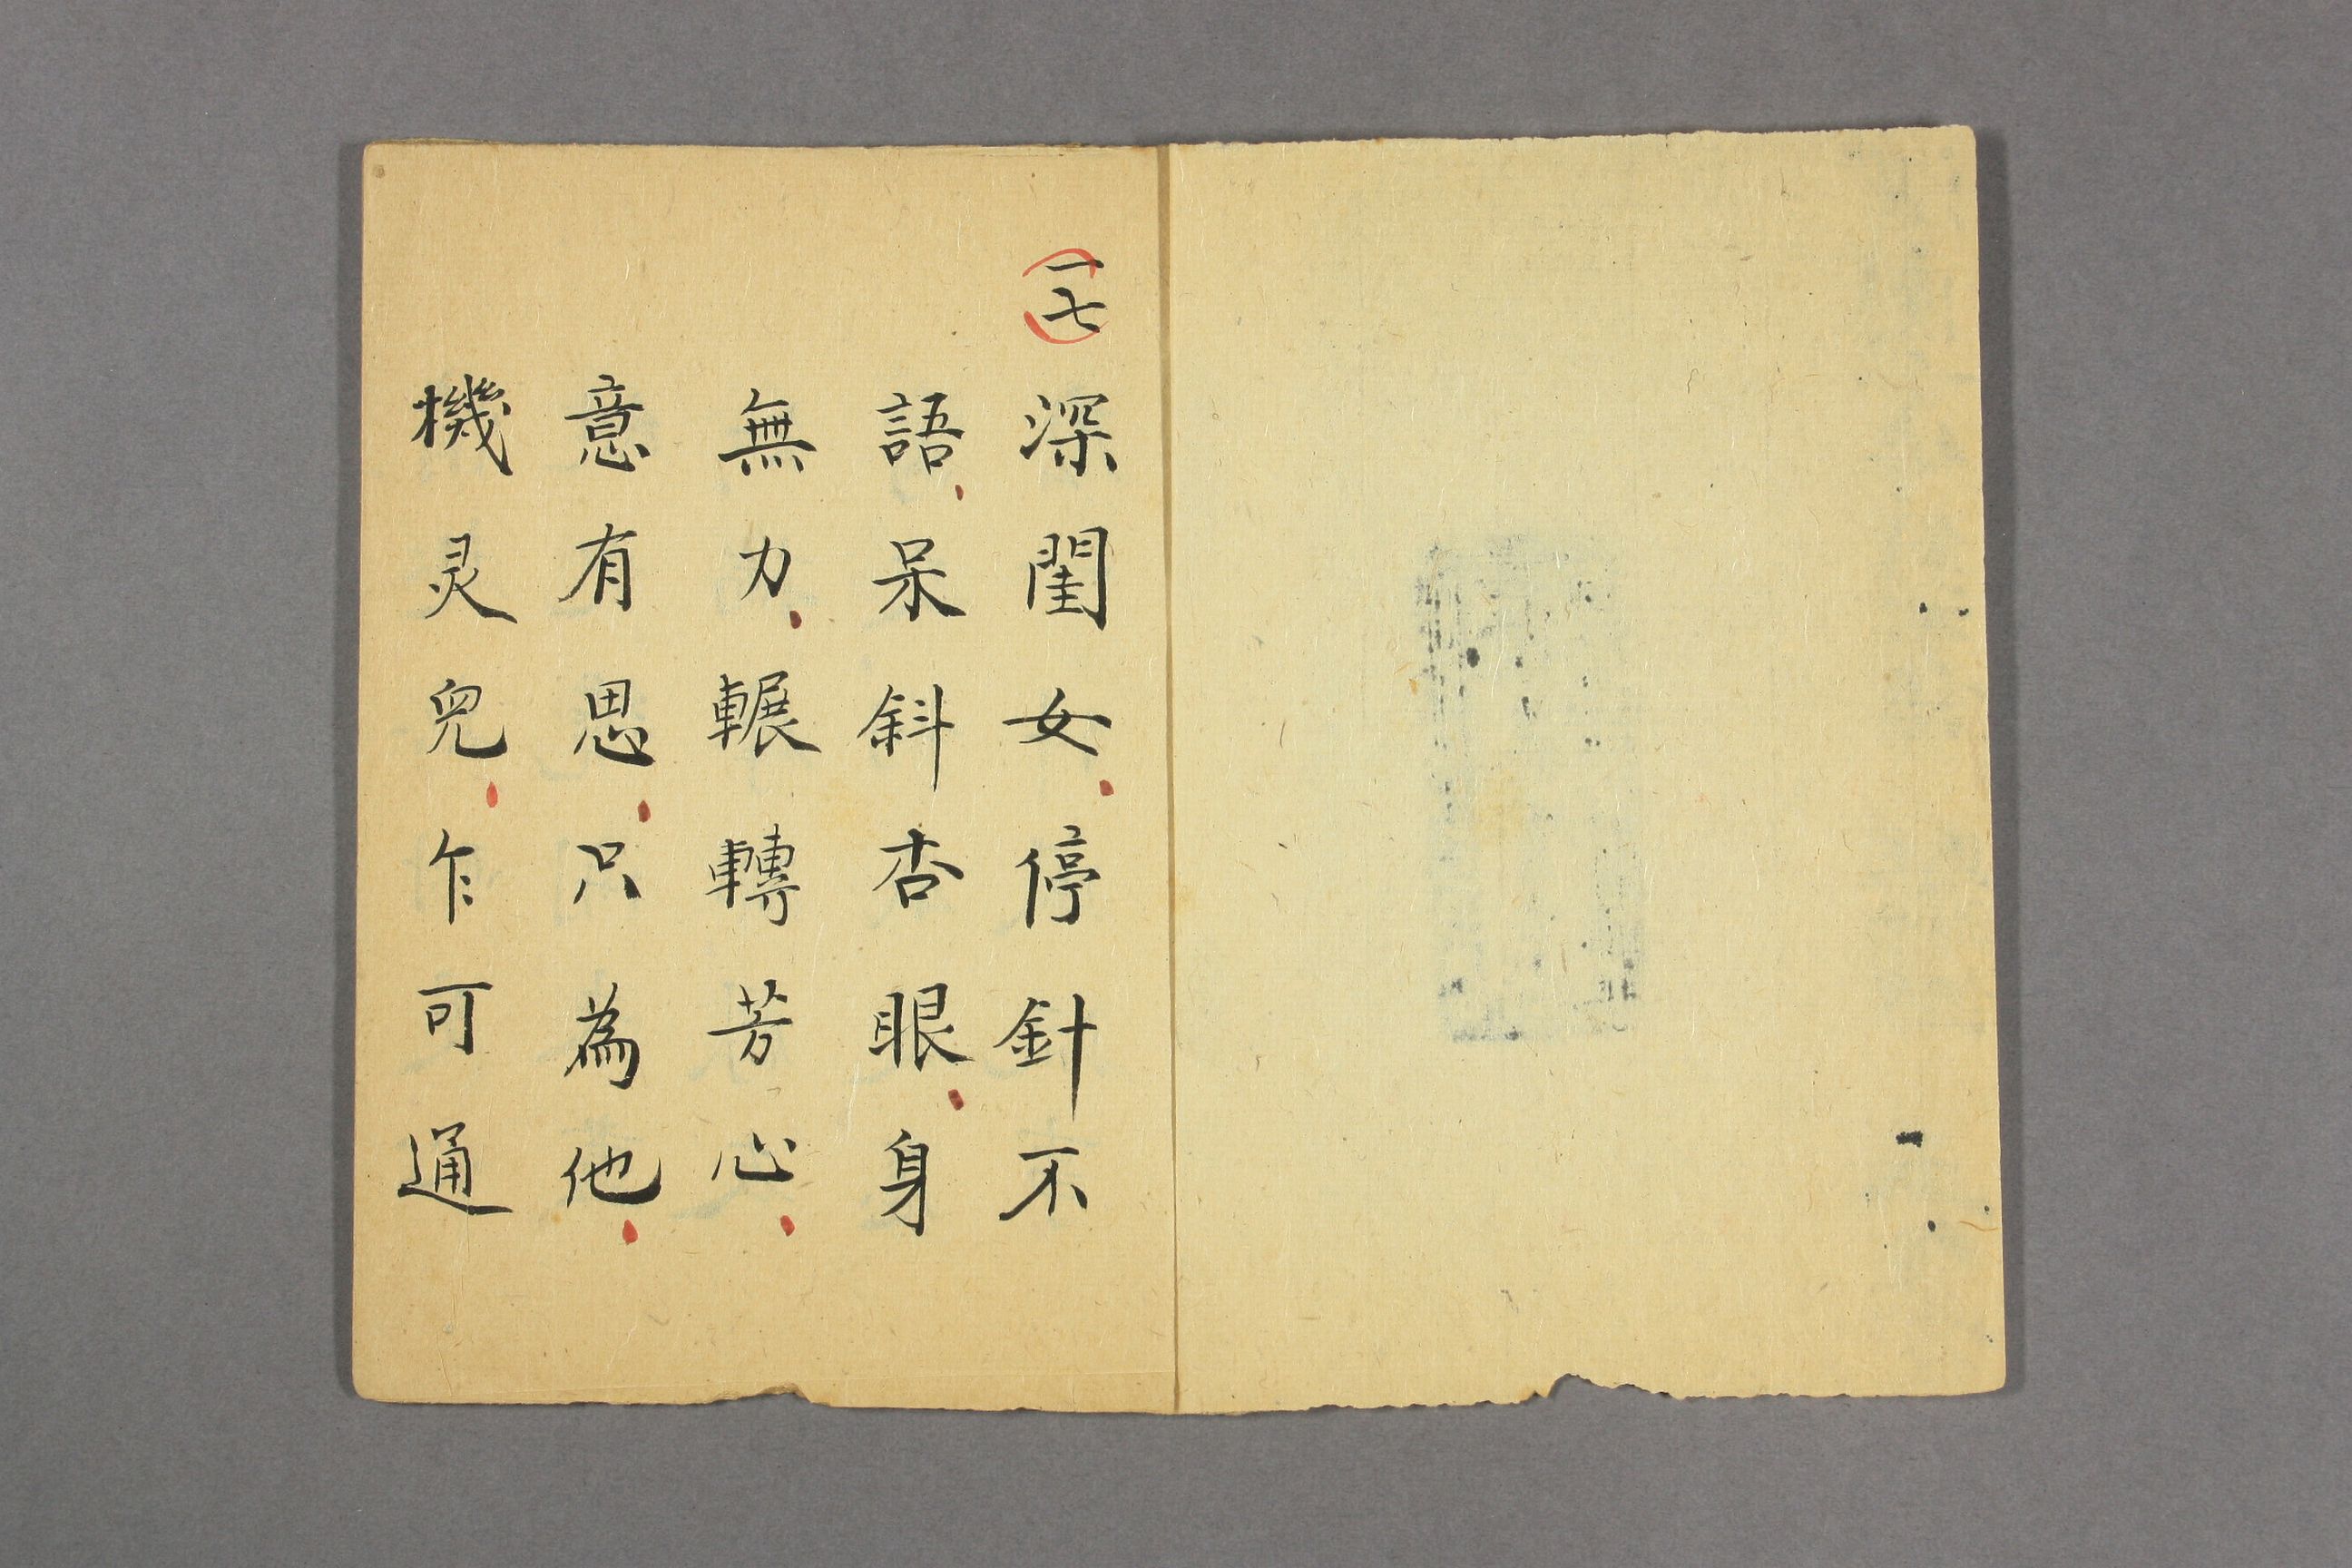 一七
深閨女停針不
語呆斜杏眼身
無力輾轉芳心
意有思只為他
機灵兒乍可通